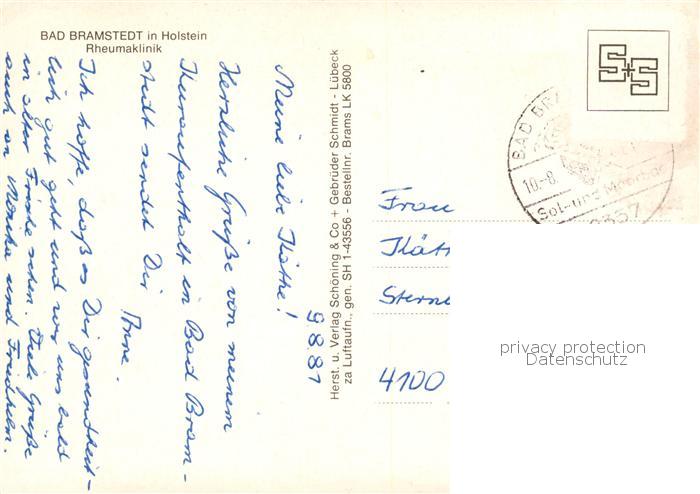 BAD BRAMSTEDT in Holstein
Rheumaklinik
9.8.81
Meine liebe Käthe!
Herzliche Grüße von meinem
Kuraufenthalt in Bad Bram-
stedt sendet Dir
Anne.
Ich hoffe, daß es Dir gesundheit-
lich gut geht und wir uns bald
in alter Frische sehen. Viele Grüße
auch an Monika und Friedhelm.
Herst. u. Verlag Schöning & Co + Gebrüder Schmidt - Lübeck
za Luftaufn., gen. SH 1-43556 - Bestellnr. Brams LK 5800
S+S
BAD BRA
10.-8.
Sol- und Moorbad
2357
Frau
Käth
Sterne
4100
privacy protection
Datenschutz